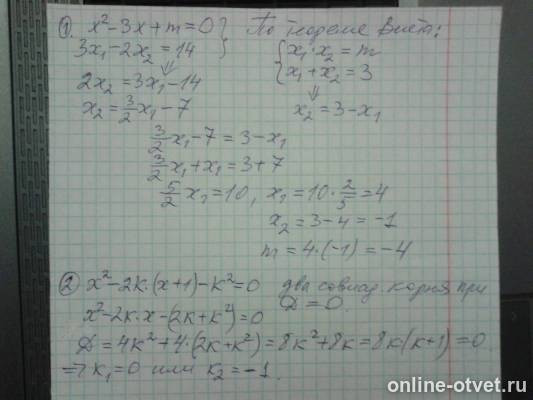 ① x² - 3x + m = 0 } По теореме Виета:
3x₁ - 2x₂ = 14 { x₁·x₂ = m
⇓ x₁ + x₂ = 3
2x₂ = 3x₁ - 14 ⇓
x₂ = 3/2 x₁ - 7 x₂ = 3 - x₁
3/2 x₁ - 7 = 3 - x₁
3/2 x₁ + x₁ = 3 + 7
5/2 x₁ = 10, x₁ = 10 · 2/5 = 4
x₂ = 3 - 4 = -1
m = 4·(-1) = -4
② x² - 2k·(x+1) - k² = 0 два совпад. корня при
x² - 2k·x - (2k + k²) = 0 D = 0.
D = 4k² + 4·(2k + k²) = 8k² + 8k = 8k(k+1) = 0
⇒ k₁ = 0 или k₂ = -1.
online-otvet.ru